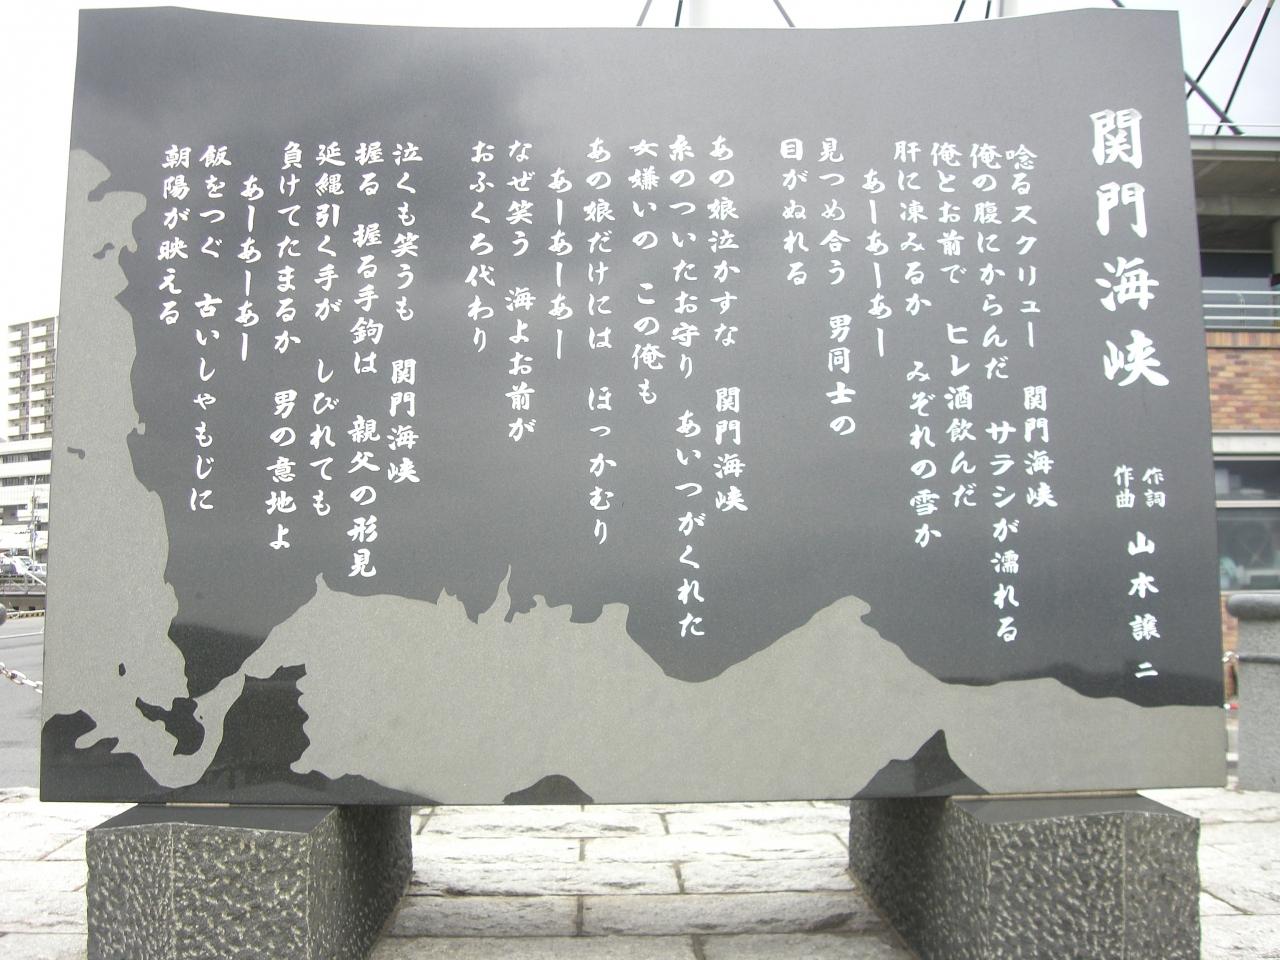 関門海峡
作詞
作曲
山本譲二
唸るスクリュー 関門海峡
俺の腹にからんだ サラシが濡れる
俺とお前で ヒレ酒飲んだ
肝に凍みるか みぞれの雪か
あーあーあー
見つめ合う 男同士の
目がぬれる
あの娘泣かすな 関門海峡
糸のついたお守り あいつがくれた
女嫌いの この俺も
あの娘だけには ほっかむり
あーあーあー
なぜ笑う 海よお前が
おふくろ代わり
泣くも笑うも 関門海峡
握る 握る手鉤は 親父の形見
延縄引く手が しびれても
負けてたまるか 男の意地よ
あーあーあー
飯をつぐ 古いしゃもじに
朝陽が映える